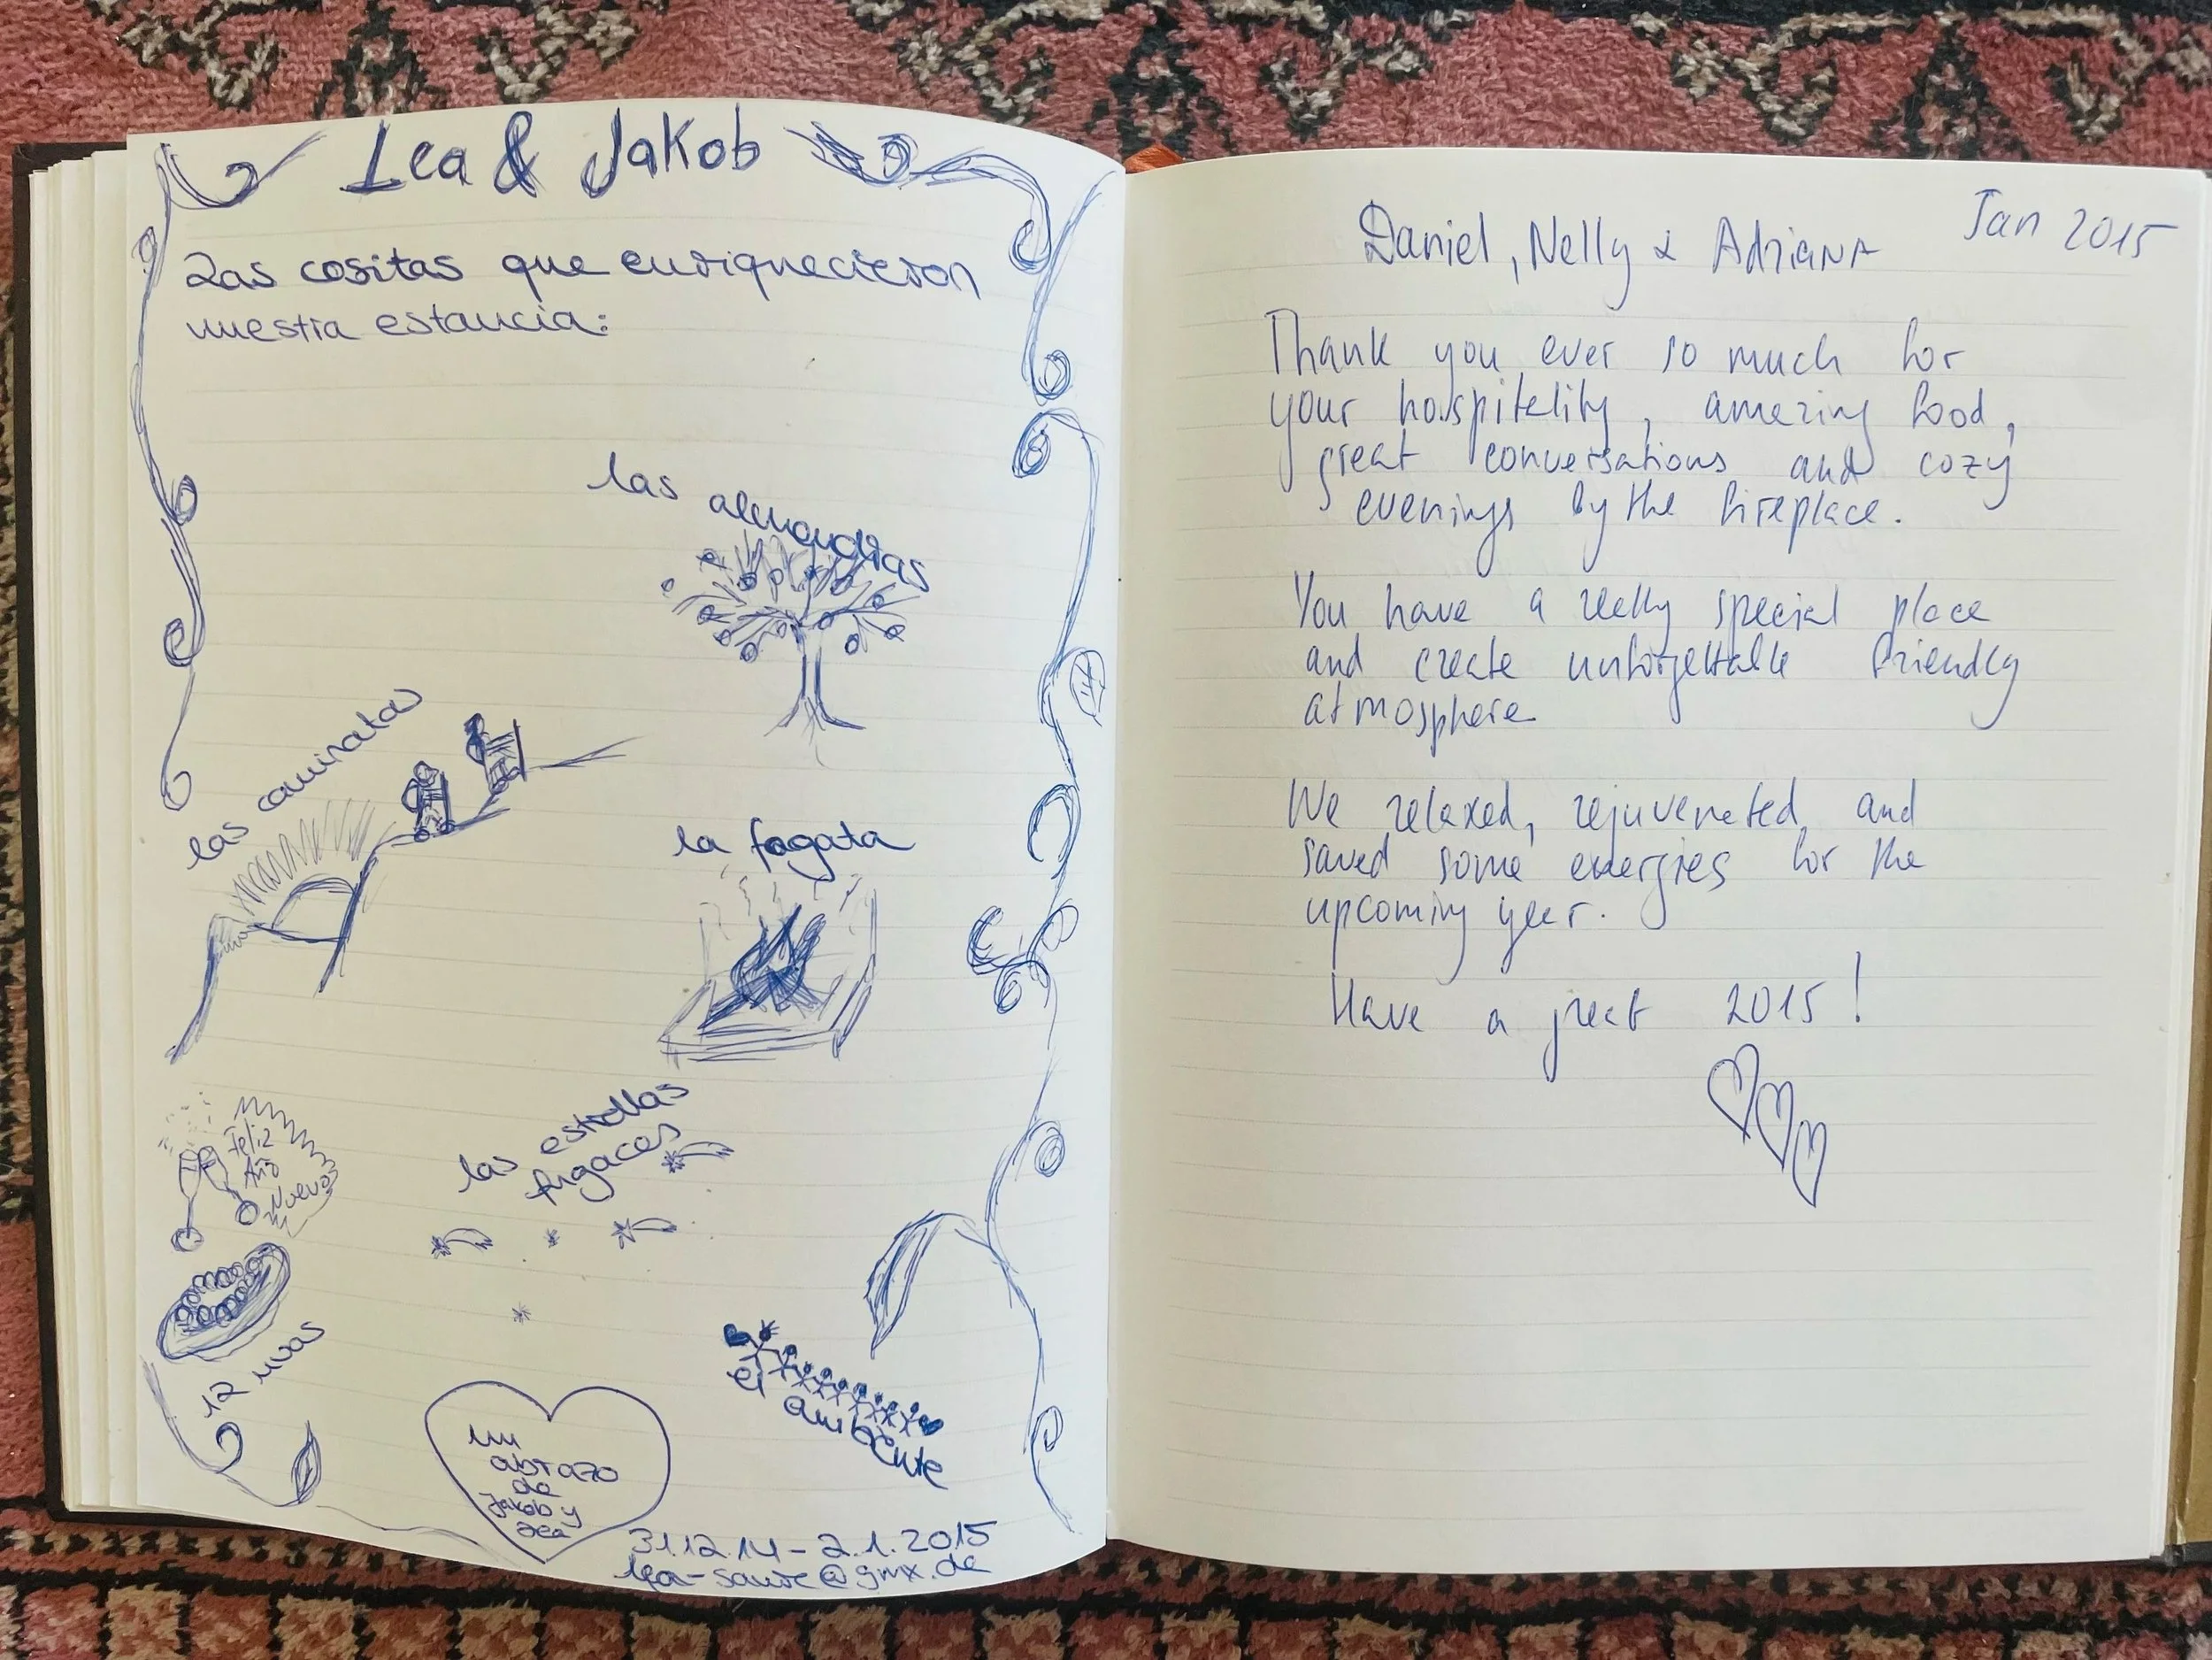 Lea & Jakob
Las cositas que enriquecieron
nuestra estancia:
las almendras
las caminatas
la fogata
las estrellas
fugaces
Feliz
Año
Nuevo
12 uvas
el
ambiente
un
abrazo
de
Jakob y
Lea
31.12.14 - 2.1.2015
@gmx.de
Jan 2015
Daniel, Nelly & Adriana
Thank you ever so much for
your hospitality, amazing food,
great conversations and cozy
evenings by the fireplace.
You have a really special place
and create unforgettable friendly
atmosphere
We relaxed, rejuvenated and
saved some energies for the
upcoming year.
Have a great 2015!